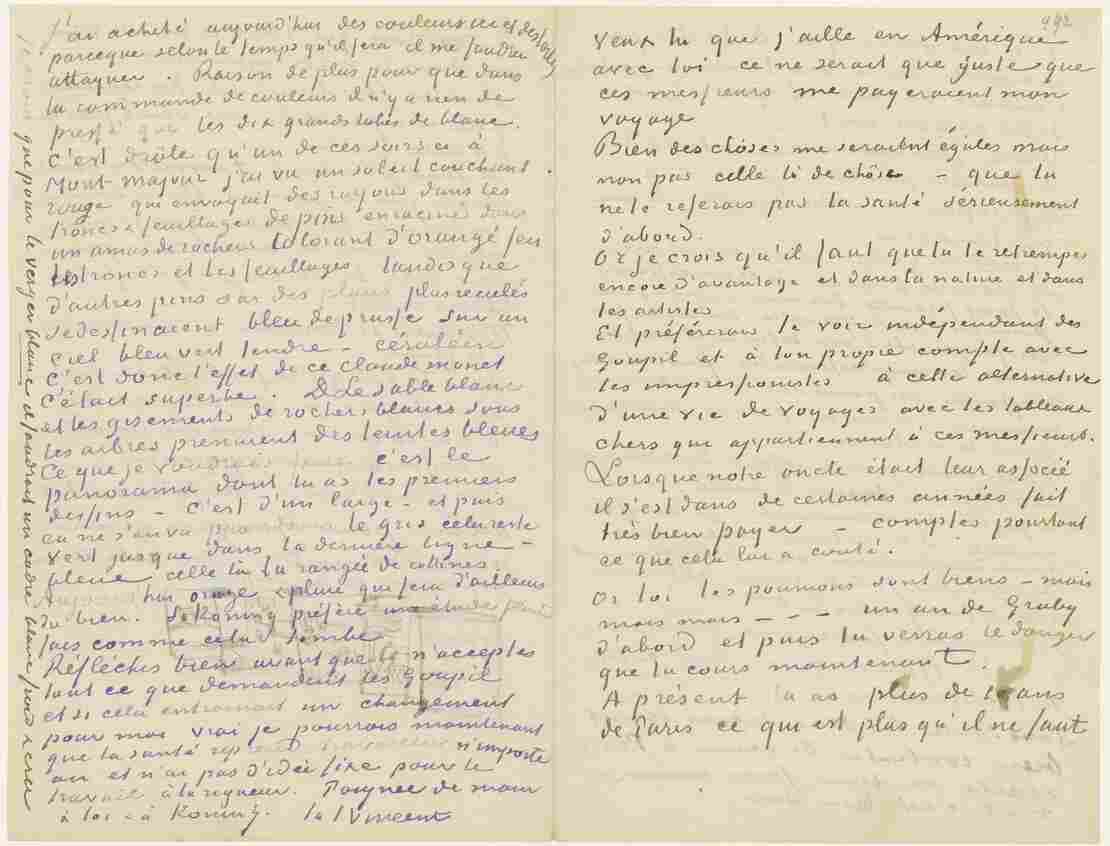 J'ai acheté aujourd'hui des couleurs ici et des toiles
parceque selon le temps qu'il fera il me faudra
attaquer. Raison de plus pour que dans
la commande de couleurs il n'y a rien de
pressé que les dix grands tubes de blanc.
C'est drôle qu'un de ces soirs ci à
Mont-Majour j'ai vu un soleil couchant
rouge qui envoyait des rayons dans les
troncs & feuillages de pins enracinés dans
un amas de rochers colorant d'orangé feu
les troncs et les feuillages tandis que
d'autres pins sur des plans plus reculés
se dessinaient bleu de prusse sur un
ciel bleu vert tendre – céruléen
C'est donc l'effet de ce Claude Monet
c'était superbe. Le sable blanc
et les gisements de rochers blancs sous
les arbres prenaient des teintes bleues
Ce que je voudrais faire c'est le
panorama dont tu as les premiers
dessins – C'est d'un large – et puis
ca ne s'en va pas dans le gris cela reste
vert jusque dans la dernière ligne –
bleue celle là la rangée de collines.
Aujourd'hui orage & pluie qui fera d'ailleurs
du bien. Si Koning préfère une étude peinte
fais comme cela semble
Réfléchis bien avant que tu n'acceptes
tout ce que demandent les Goupil
et si cela entrainait un changement
pour moi vrai je pourrais maintenant
que la santé reprend travailler n'importe
où et n'ai pas d'idée fixe pour le
travail à la rigueur. Poignée de main
à toi & à Koning. t. à t Vincent
que pour le verger blanc il faudrait un cadre blanc froid & cru
492
Veux tu que j'aille en Amérique
avec toi ce ne serait que juste que
ces messieurs me payeraient mon
voyage
Bien des chôses me seraient égales mais
non pas celle là de chôse – que tu
ne te referais pas la santé sérieusement
d'abord.
Or je crois qu'il faut que tu te retrempes
encore d'avantage et dans la nature et dans
les artistes
Et préférerais te voir indépendant des
Goupil et à ton propre compte avec
les impressionistes à cette alternative
d'une vie de voyages avec les tableaux
chers qui appartiennent à ces messieurs.
Lorsque notre oncle était leur associé
il s'est dans de certaines années fait
très bien payer – comptes pourtant
ce que cela lui a couté.
Or toi les poumons sont biens – mais
mais mais – – – un an de Gruby
d'abord et puis tu verras le danger
que tu cours maintenant.
A présent t'u as plus de 10 ans
de Paris ce qui est plus qu'il ne faut